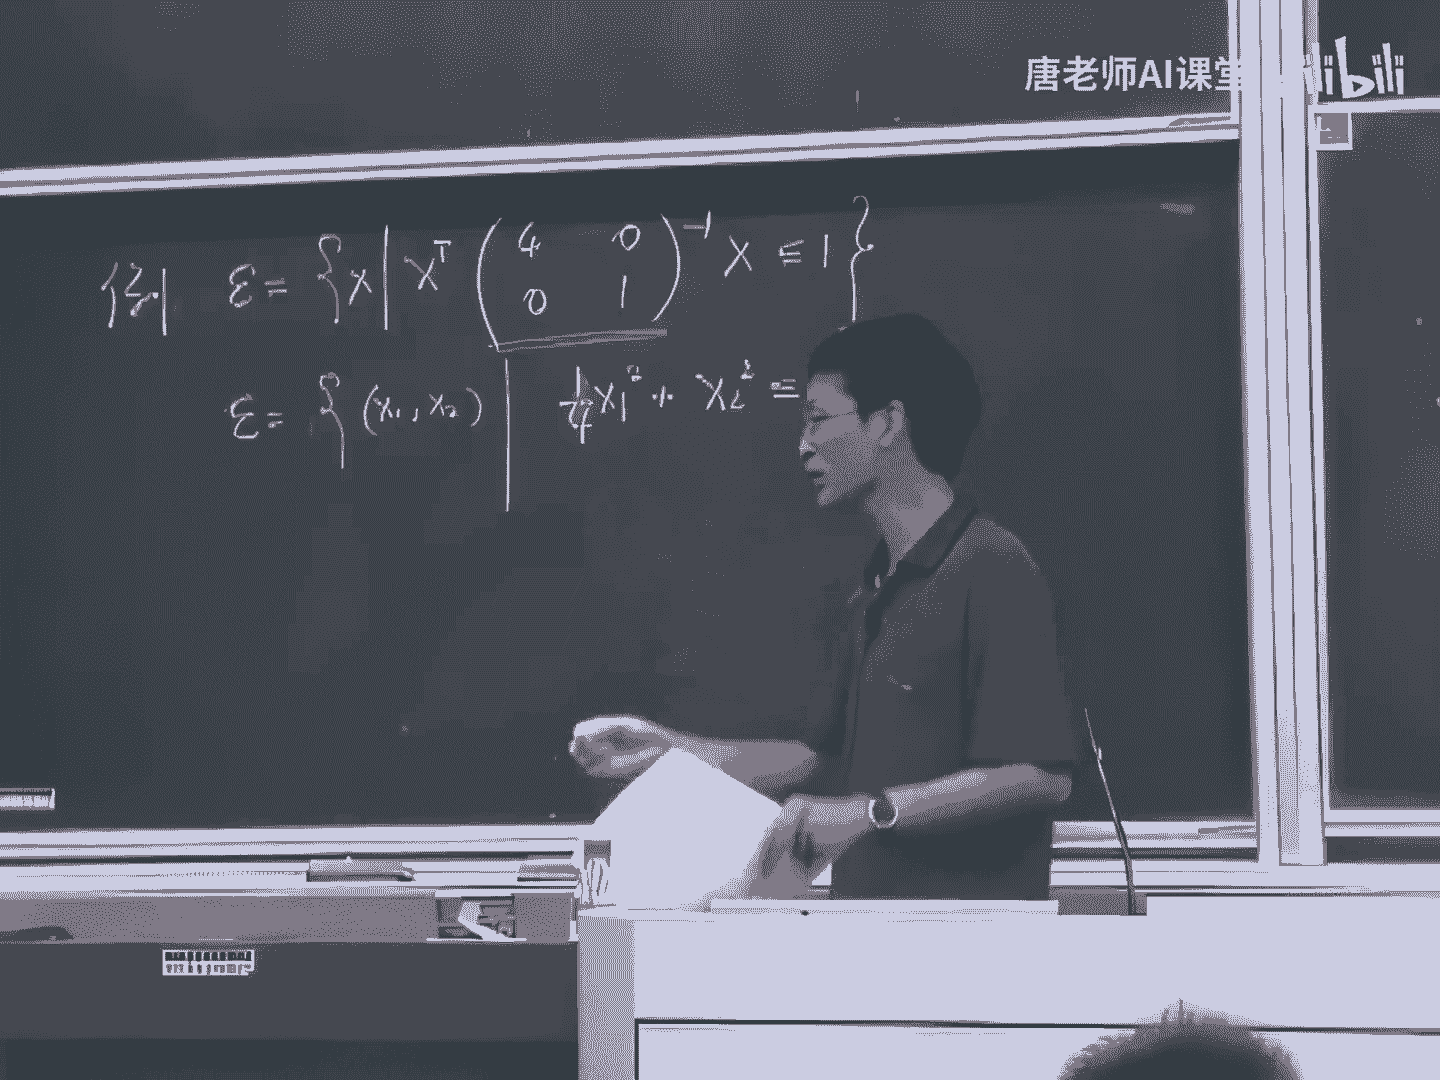 唐老师AI课堂 bilibili
例 ℰ = { x | x^T ( 4 0 ; 0 1 )^{-1} x ≤ 1 }
ℰ = { (x₁, x₂) | 1/4 x₁² + x₂² ≤